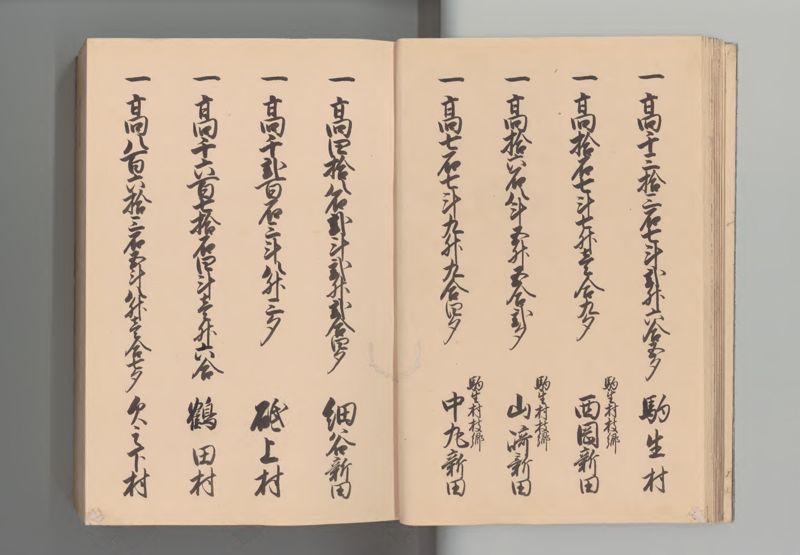 一高千三拾三石七斗弐升六合五夕 駒生村
駒生村枝郷
一高拾石七斗七升壱合九夕 西岡新田
駒生村枝郷
一高拾六石八斗五升五合弐夕 山崎新田
駒生村枝郷
一高七石七斗九升九合四夕 中丸新田
一高四拾八石弐斗弐升弐合四夕 細谷新田
一高千弐百石三斗八升三夕 砥上村
一高千六百七拾石四斗壱升六合 鶴田村
一高八百六拾三石五斗八升壱合七夕 欠之下村